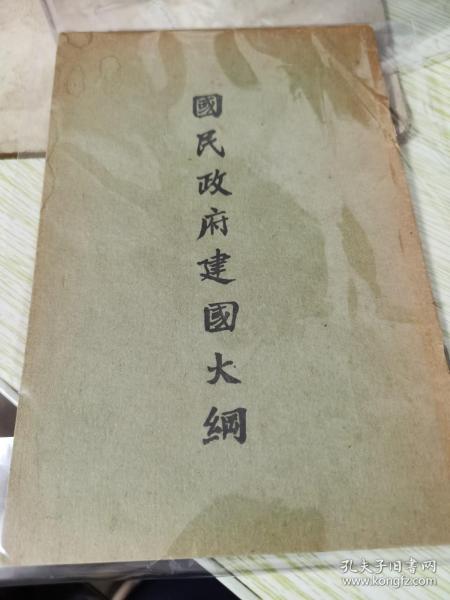 國民政府建國大綱
孔夫子旧书网
www.kongfz.com